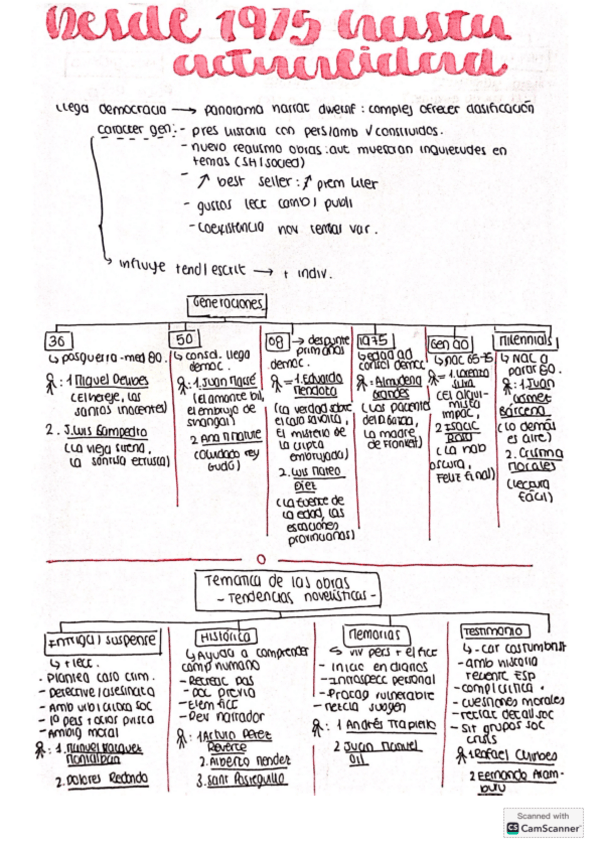 Desde 1975 hasta
actualidad
llega democracia → panorama narrat diversif : complej ofrecer clasificación
caracter gen: - pres historia con pers/amb √ construidos.
- nuevo realismo obras : aut muestran inquietudes en
temas (SH/socied)
- ↑ best seller : ↑ prem liter
- gustos lect camb/ publi
- coexistencia nov temas var.
influye tend/ escrit → + indiv.
Generaciones
36
↳ posguerra - med 80.
: 1 Miguel Delibes
(el hereje, los
santos inocentes)
2. J. Luis Sampedro
(la vieja sirena,
la sonrisa etrusca)
50
↳ consol. llega
democ.
: 1. Juan Marsé
(el amante bil,
el embrujo de
shangai)
2 Ana M Matute
(olvidado rey
Gudú)
68 → despunte
prim años
democ.
= 1. Eduardo
Mendoza
(la verdad sobre
el caso savolta,
el misterio de
la cripta
embrujada)
2. Luis Mateo
Díez
(la fuente de
la edad, las
estaciones
provinciales)
1975
↳ edad ad
consol democ
= Almudena
Grandes
(Los pacientes
del D García,
la madre
de Frankest)
Gen 80
↳ nac 65-75
= 1. Lorenzo
Silva
(el alqui-
mista
impac,
2 Isaac
Rosa
(la hab
oscura,
Feliz final)
Milennials
↳ nac a
partir 80.
: 1. Juan
Gómez
Bárcena
(lo demás
es aire)
2. Cristina
Morales
(lectura
fácil)
Temática de las obras
- Tendencias novelísticas -
Intriga/ suspense
↳ + lect.
- Plantea caso crim.
- Detective/asesinato
- Amb urb/ clase soc
- Ambig moral
: 1. Manuel Vázquez
Montalbán
2. Dolores Redondo
Histórica
↳ Ayuda a comprender
comp humano
- Recreac pas
- Doc previa
- Elem ficc
- Per narrador
: 1 Arturo Pérez
Reverte
2. Alberto Méndez
3. Sant Posteguillo
Memorias
↳ viv pers + el ficc
- iniciac en diarios
- Introspecc personal
- Protag vulnerable
- mezcla suogen
: 1 Andrés Trapiello
2 Juan Manuel
Gil
Testimonio
↳ - car costumbrist
- amb historia
reciente Esp
- comp crítica.
- cuestiones morales
- retrat detall soc
- Sit grupos soc
crisis
: 1 Rafael Chirbes
2 Fernando Aram-
buru
Scanned with
CS CamScanner